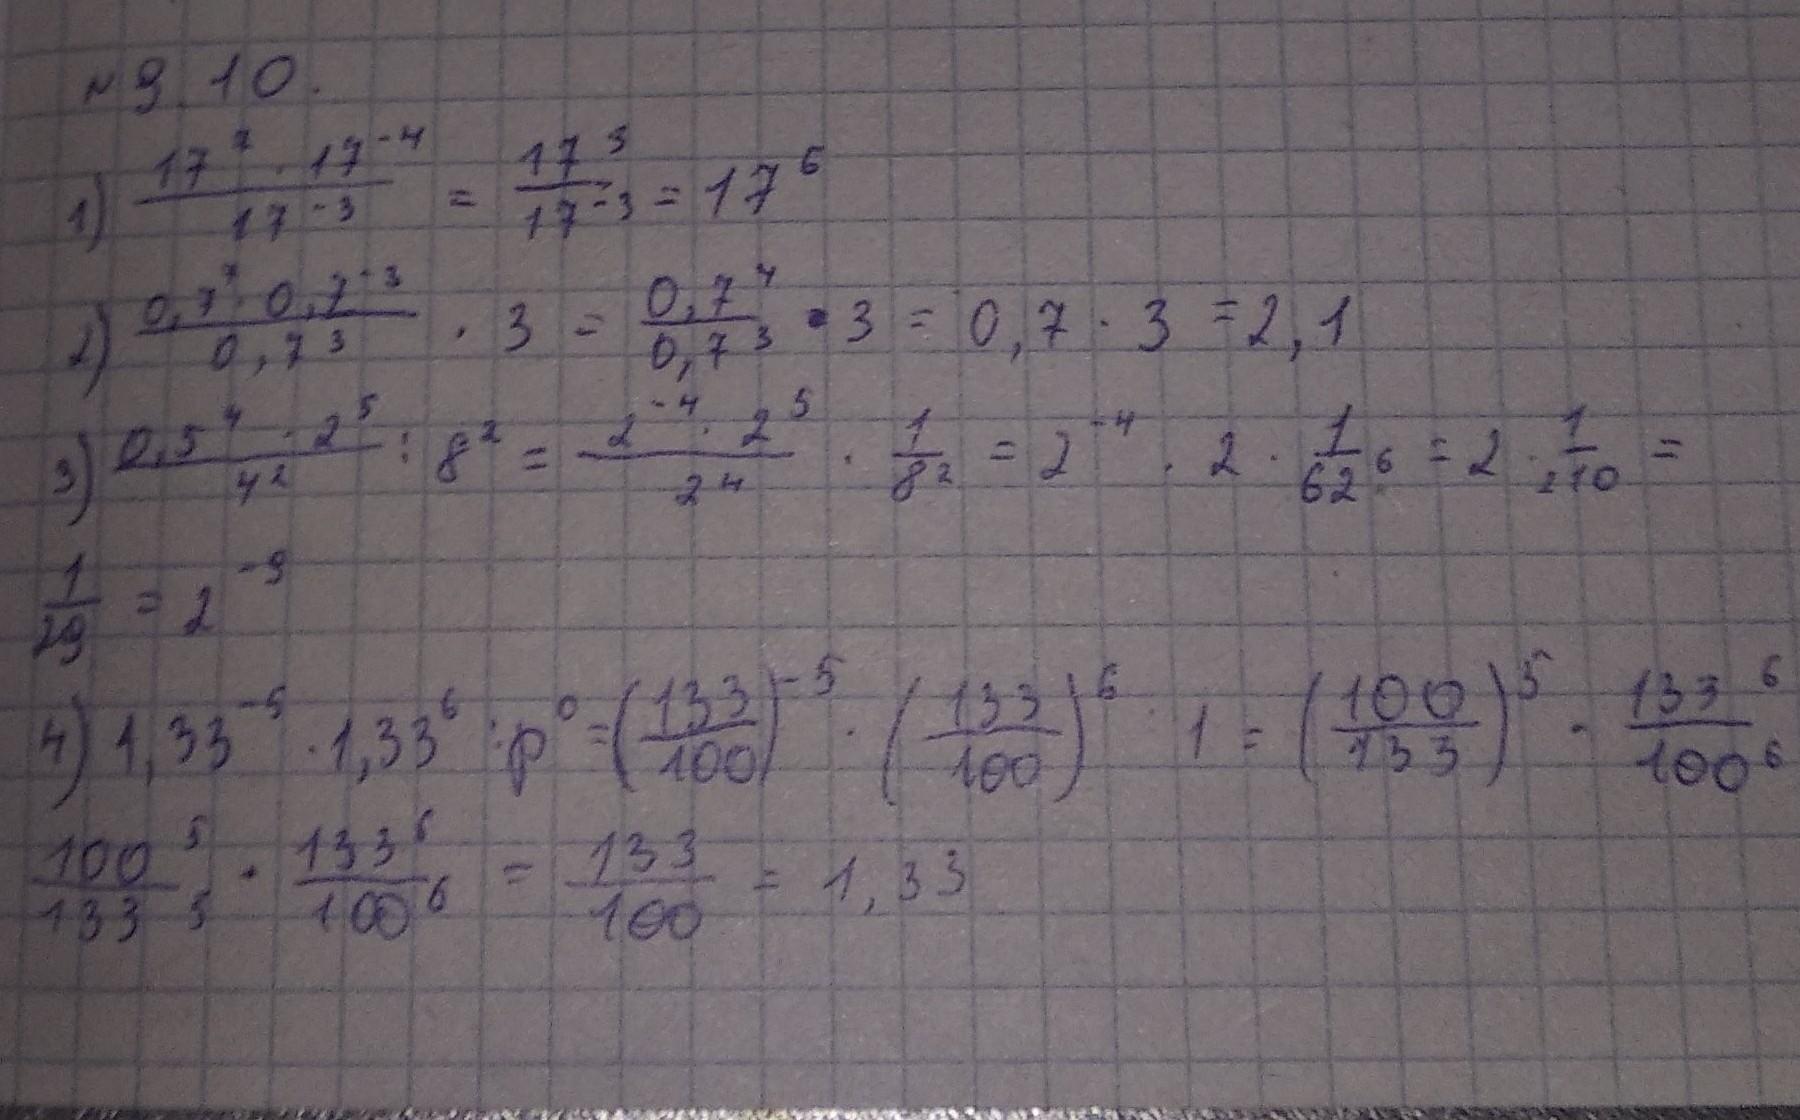 № 9.10.
1) \frac{17^7 · 17^{-4}}{17^{-3}} = \frac{17^3}{17^{-3}} = 17^6
2) \frac{0,7^7 · 0,7^{-3}}{0,7^3} · 3 = \frac{0,7^4}{0,7^3} · 3 = 0,7 · 3 = 2,1
3) \frac{0,5^4 · 2^5}{4^2} : 8^2 = \frac{2^{-4} · 2^5}{2^4} · \frac{1}{8^2} = 2^{-4} · 2 · \frac{1}{62^6} = 2 · \frac{1}{2^{10}} =
\frac{1}{2^9} = 2^{-9}
4) 1,33^{-5} · 1,33^6 : p^0 = (\frac{133}{100})^{-5} · (\frac{133}{100})^6 : 1 = (\frac{100}{133})^5 · \frac{133^6}{100^6}
\frac{100^5}{133^5} · \frac{133^6}{100^6} = \frac{133}{100} = 1,33